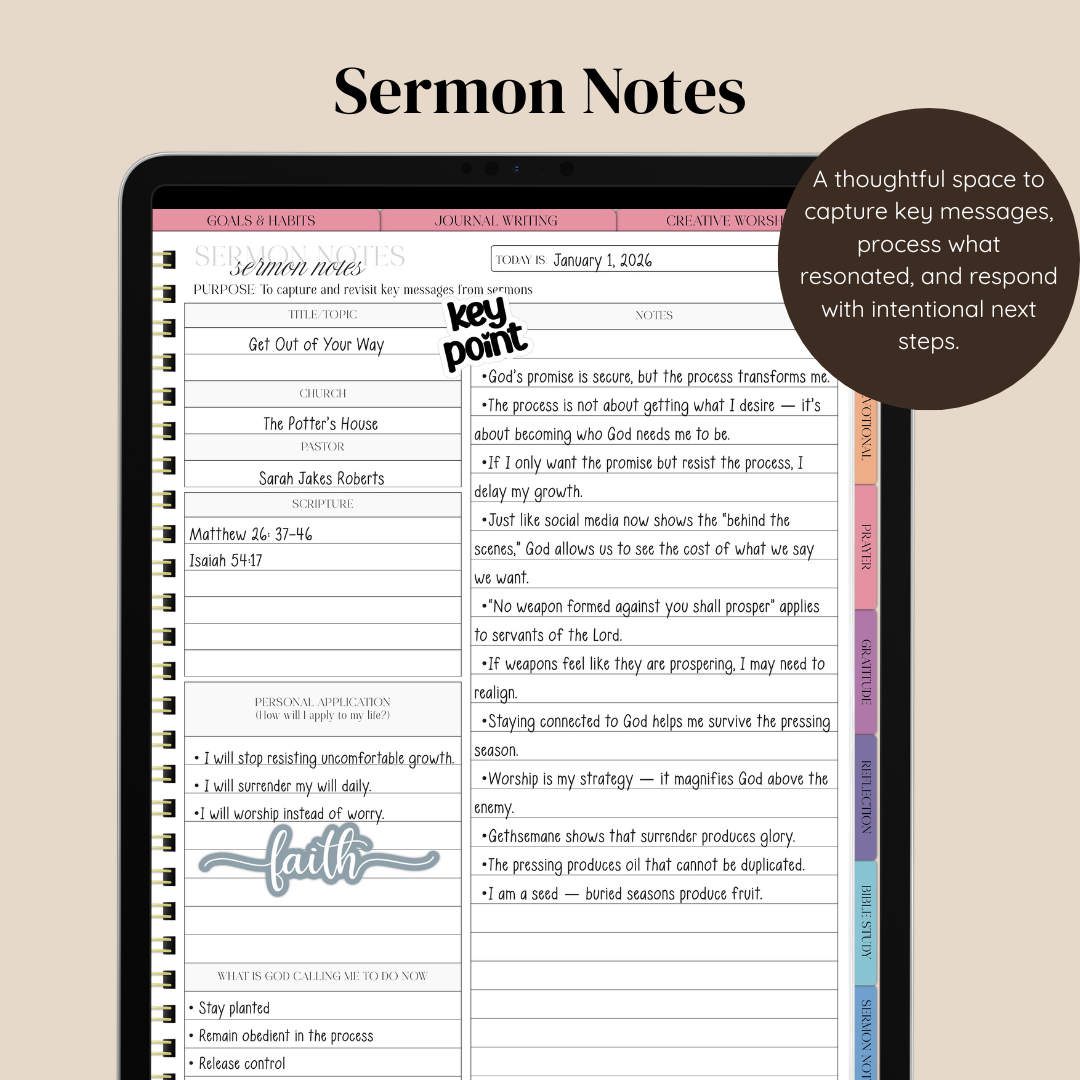 Sermon Notes
A thoughtful space to
capture key messages,
process what
resonated, and respond
with intentional next
steps.
GOALS & HABITS
JOURNAL WRITING
CREATIVE
SERMON NOTES
sermon notes
TODAY IS: January 1, 2026
PURPOSE: To capture and revisit key messages from sermons
key
point
TITLE/TOPIC
Get Out of Your Way
CHURCH
The Potter's House
PASTOR
Sarah Jakes Roberts
SCRIPTURE
Matthew 26: 37-46
Isaiah 54:17
PERSONAL APPLICATION
(How will I apply to my life?)
• I will stop resisting uncomfortable growth.
• I will surrender my will daily.
•I will worship instead of worry.
faith
WHAT IS GOD CALLING ME TO DO NOW
• Stay planted
• Remain obedient in the process
• Release control
NOTES
•God's promise is secure, but the process transforms me.
•The process is not about getting what I desire — it's
about becoming who God needs me to be.
•If I only want the promise but resist the process, I
delay my growth.
•Just like social media now shows the "behind the
scenes," God allows us to see the cost of what we say
we want.
•"No weapon formed against you shall prosper" applies
to servants of the Lord.
•If weapons feel like they are prospering, I may need to
realign.
•Staying connected to God helps me survive the pressing
season.
•Worship is my strategy — it magnifies God above the
enemy.
•Gethsemane shows that surrender produces glory.
•The pressing produces oil that cannot be duplicated.
•I am a seed — buried seasons produce fruit.
PRAYER
GRATITUDE
REFLECTION
BIBLE STUDY
SERMON